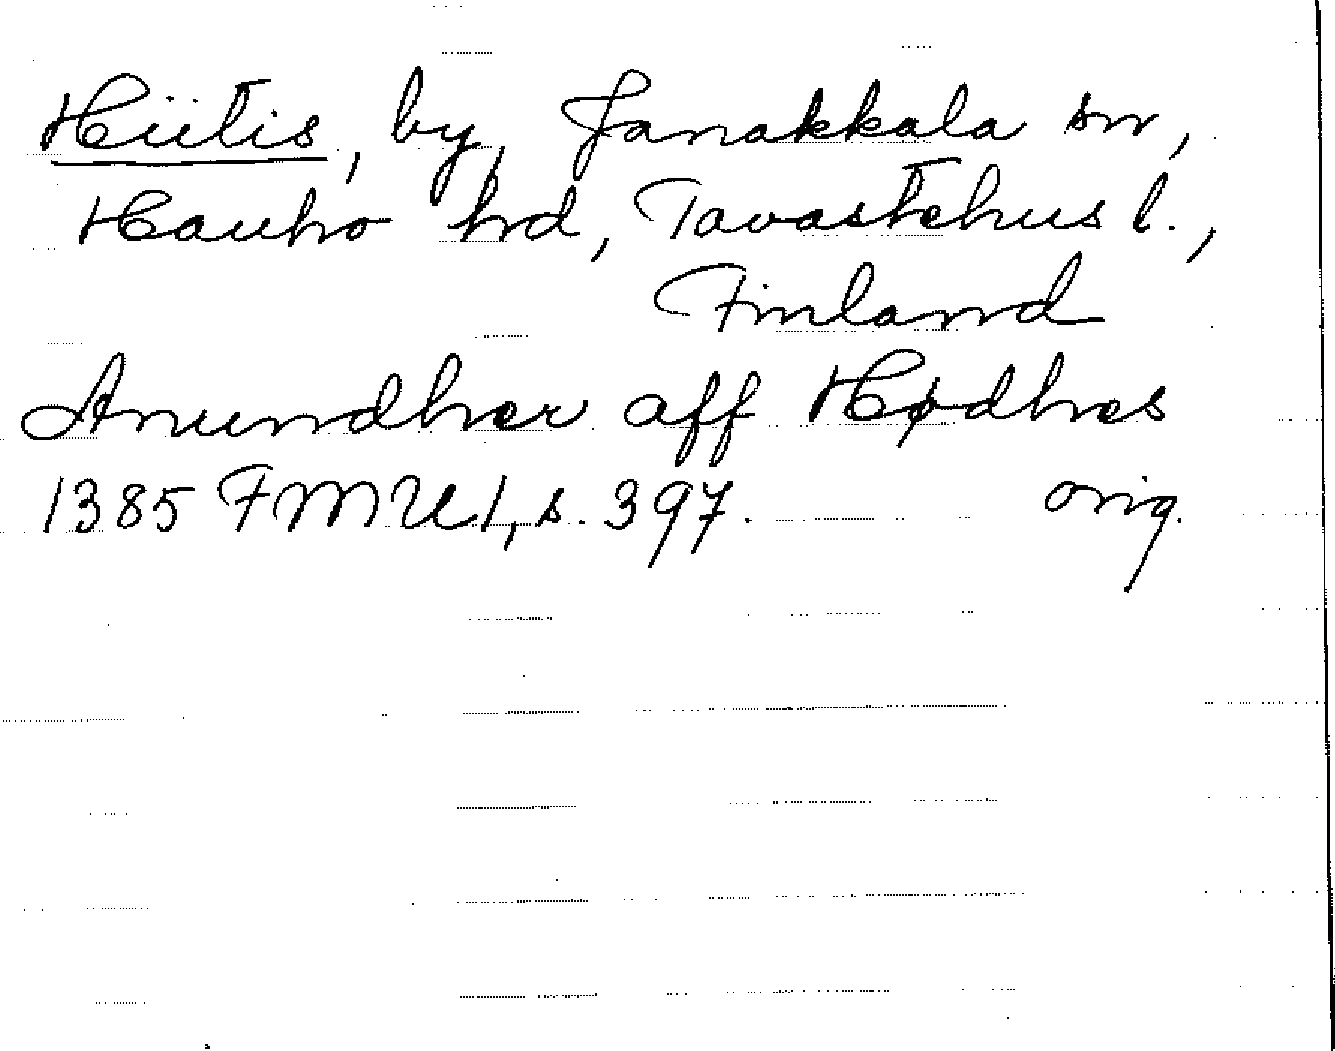 Hiitis, by, Janakkala sn,
Hauho hd, Tavastehus l.,
Finland
Anundher aff Hødhes
1385 FMU 1, s. 397. orig.